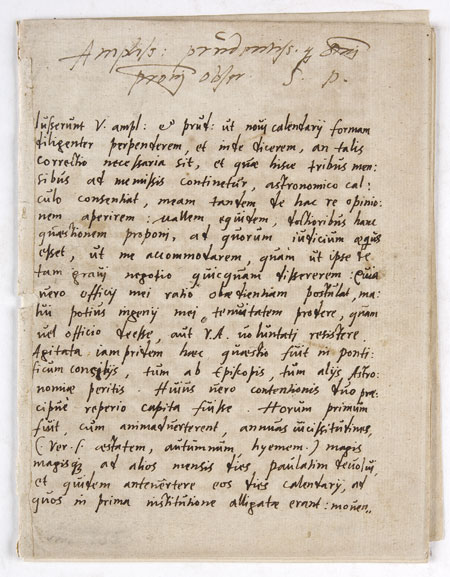 Ampliss: prudentiss. q
obser S. p.
Iusserunt V. ampl: & prud: ut noui calendarij formam
diligenter perpenderem, et inde dicerem, an talis
correctio necessaria sit, et quæ hisce tribus men=
sibus ad me missis continetur, astronomico cal=
culo consentiat, meam tandem de hac re opinio=
nem aperirem: mallem equidem, doctioribus hanc
quæstionem proponi, ad quorum iudicium æquus
esset, ut me accommodarem, quam ut ipse de
tam graui negotio quicquam dissererem: Quia
uero officij mei ratio obædientiam postulat, ma=
lui potius ingenij mei tenuitatem prodere, quam
uel officio deesse, aut V.A. uoluntati resistere.
Agitata iampridem hæc quæstio fuit in ponti=
ficum concilijs, tum ab Episcopis, tum alijs Astro=
nomiæ peritis. Huius uero contentionis duo præ=
cipuè reperio capita fuisse. Horum primum
fuit, cum animaduerterent, annuas uicissitudines,
(Ver. æstatem, autumnum, hyemem.) magis
magisq3 ad alios mensis dies paulatim deuolui,
et quidem anteuertere eos dies calendarij, ad
quos in prima institutione alligatæ erant: mouen=